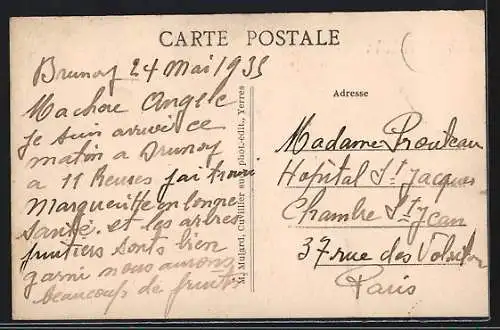 CARTE POSTALE
Brunoy 24 Mai 1935
Ma chere Angele
je suis arrivée ce
matin a Brunoy
a 11 heures j'ai trouvé
Marguerite en bonne
Santé et les arbres
fruitiers sont bien
garni nous aurons
beaucoup de fruits
M. Mulard, Cuvillier suc. phot.-édit., Yerres
Adresse
Madame Prouteau
Hôpital St Jacques
Chambre St Jean
37 rue des Volontaires
Paris